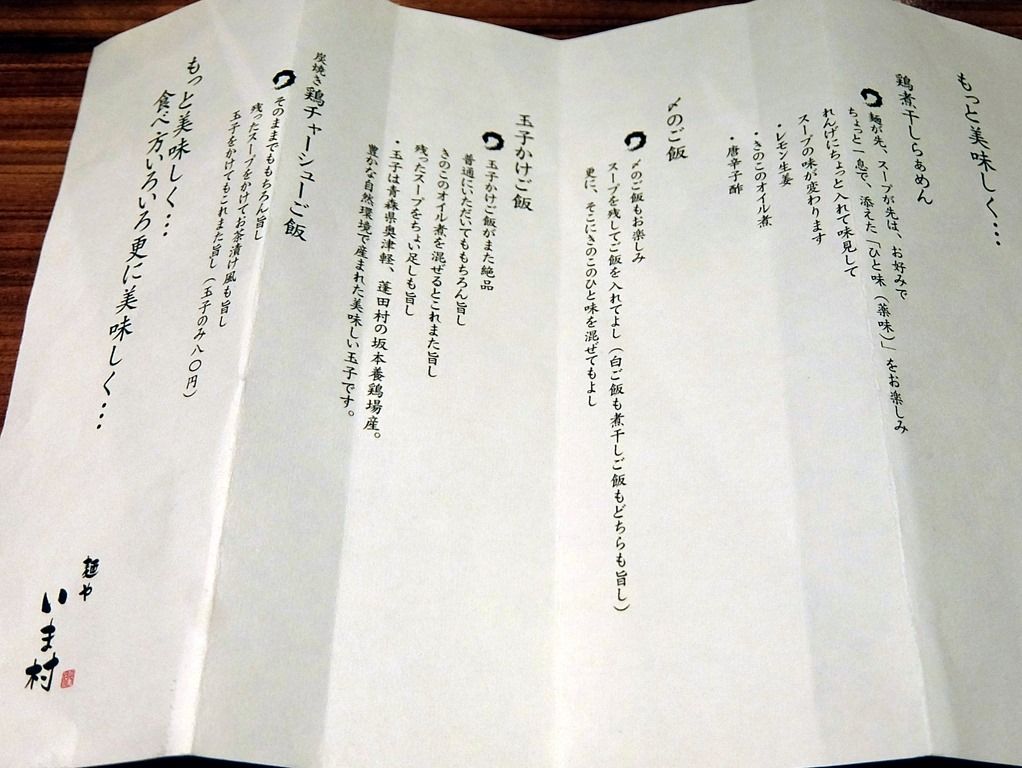 もっと美味しく…
鶏煮干しらぁめん
麺が先、スープが先は、お好みで
ちょっと一息で、添えた「ひと味(薬味)」をお楽しみ
れんげにちょっと入れて味見して
スープの味が変わります
・レモン生姜
・きのこのオイル煮
・唐辛子酢
〆のご飯
〆のご飯もお楽しみ
スープを残してご飯を入れてよし(白ご飯も煮干しご飯もどちらも旨し)
更に、そこにきのこのひと味を混ぜてもよし
玉子かけご飯
玉子かけご飯がまた絶品
普通にいただいてももちろん旨し
きのこのオイル煮を混ぜるとこれまた旨し
残ったスープをちょい足しも旨し
・玉子は青森県奥津軽、蓬田村の坂本養鶏場産。
豊かな自然環境で産まれた美味しい玉子です。
炭焼き鶏チャーシューご飯
そのままでももちろん旨し
残ったスープをかけてお茶漬け風も旨し
玉子をかけてもこれまた旨し(玉子のみ八〇円)
もっと美味しく…
食べ方いろいろ更に美味しく…
麺や
いま村